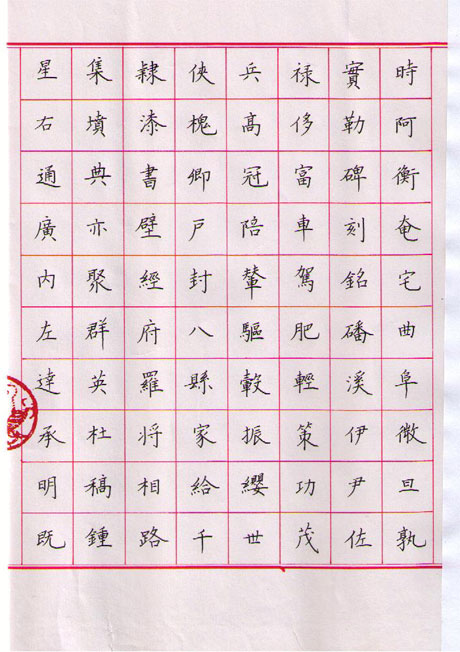 星右通廣內左達承明既
集墳典亦聚群英杜稿鍾
隸漆書壁經府羅将相路
俠槐卿戶封八縣家給千
兵高冠陪輦驅轂振纓世
禄侈富車駕肥輕策功茂
實勒碑刻銘磻溪伊尹佐
時阿衡奄宅曲阜微旦孰